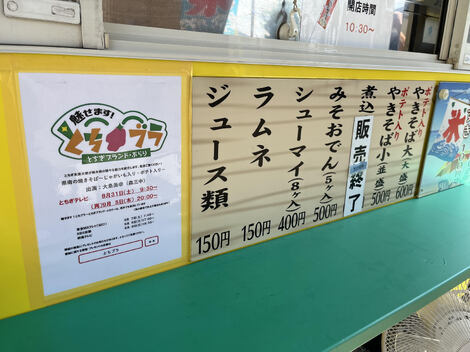 開店時間
10.30〜
魅せます!
とちブラ
とちぎブランド・ぶらり
県南の焼きそば〜じゃがいも入り・ポテト入り〜
出演：大島美幸（森三中）
とちぎテレビ
8月31日（土） 9:30〜
（再）9月 5日（木） 20:00〜
とちブラ
ジュース類 150円
ラムネ 150円
シューマイ(8ヶ入) 400円
みそおでん(5ヶ入) 500円
煮込 販売終了
ポテト入り
やきそば小並盛 500円
ポテト入り
やきそば大大盛 600円
氷